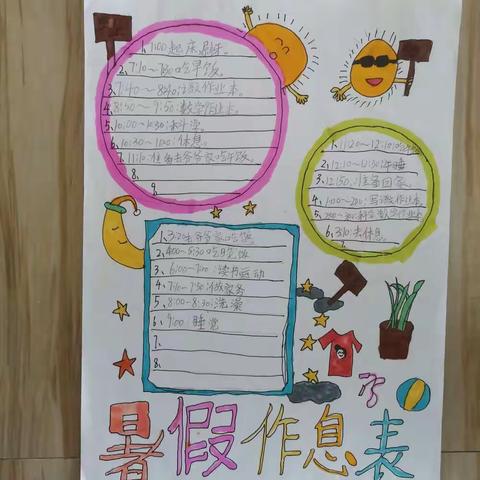 1. 1:00起床刷牙。
2. 7:10～7:30吃早饭。
3. 7:40～8:40:语文作业本。
4. 8:50～9:50:数学作业本。
5. 10:00～10:30:
6. 10:30～11:00:休息。
7. 11:10准备去爷爷家吃午饭。
8.
9.
1. 11:20～12:10:吃午饭
2. 12:10～12:30:午睡
3. 12:50:准备回家。
4. 1:00～2:00:写语文作业本。
5. 数学作业本。
6. 3:10:去休息。
7.
1. 3:20去爷爷家吃饭。
2. 4:00～5:30吃晚饭
3. 6:00～7:00:读书运动
4. 7:10～7:50:做家务
5. 8:00-8:30:洗澡
6. 9:00 睡觉
7.
8.
暑假作息表